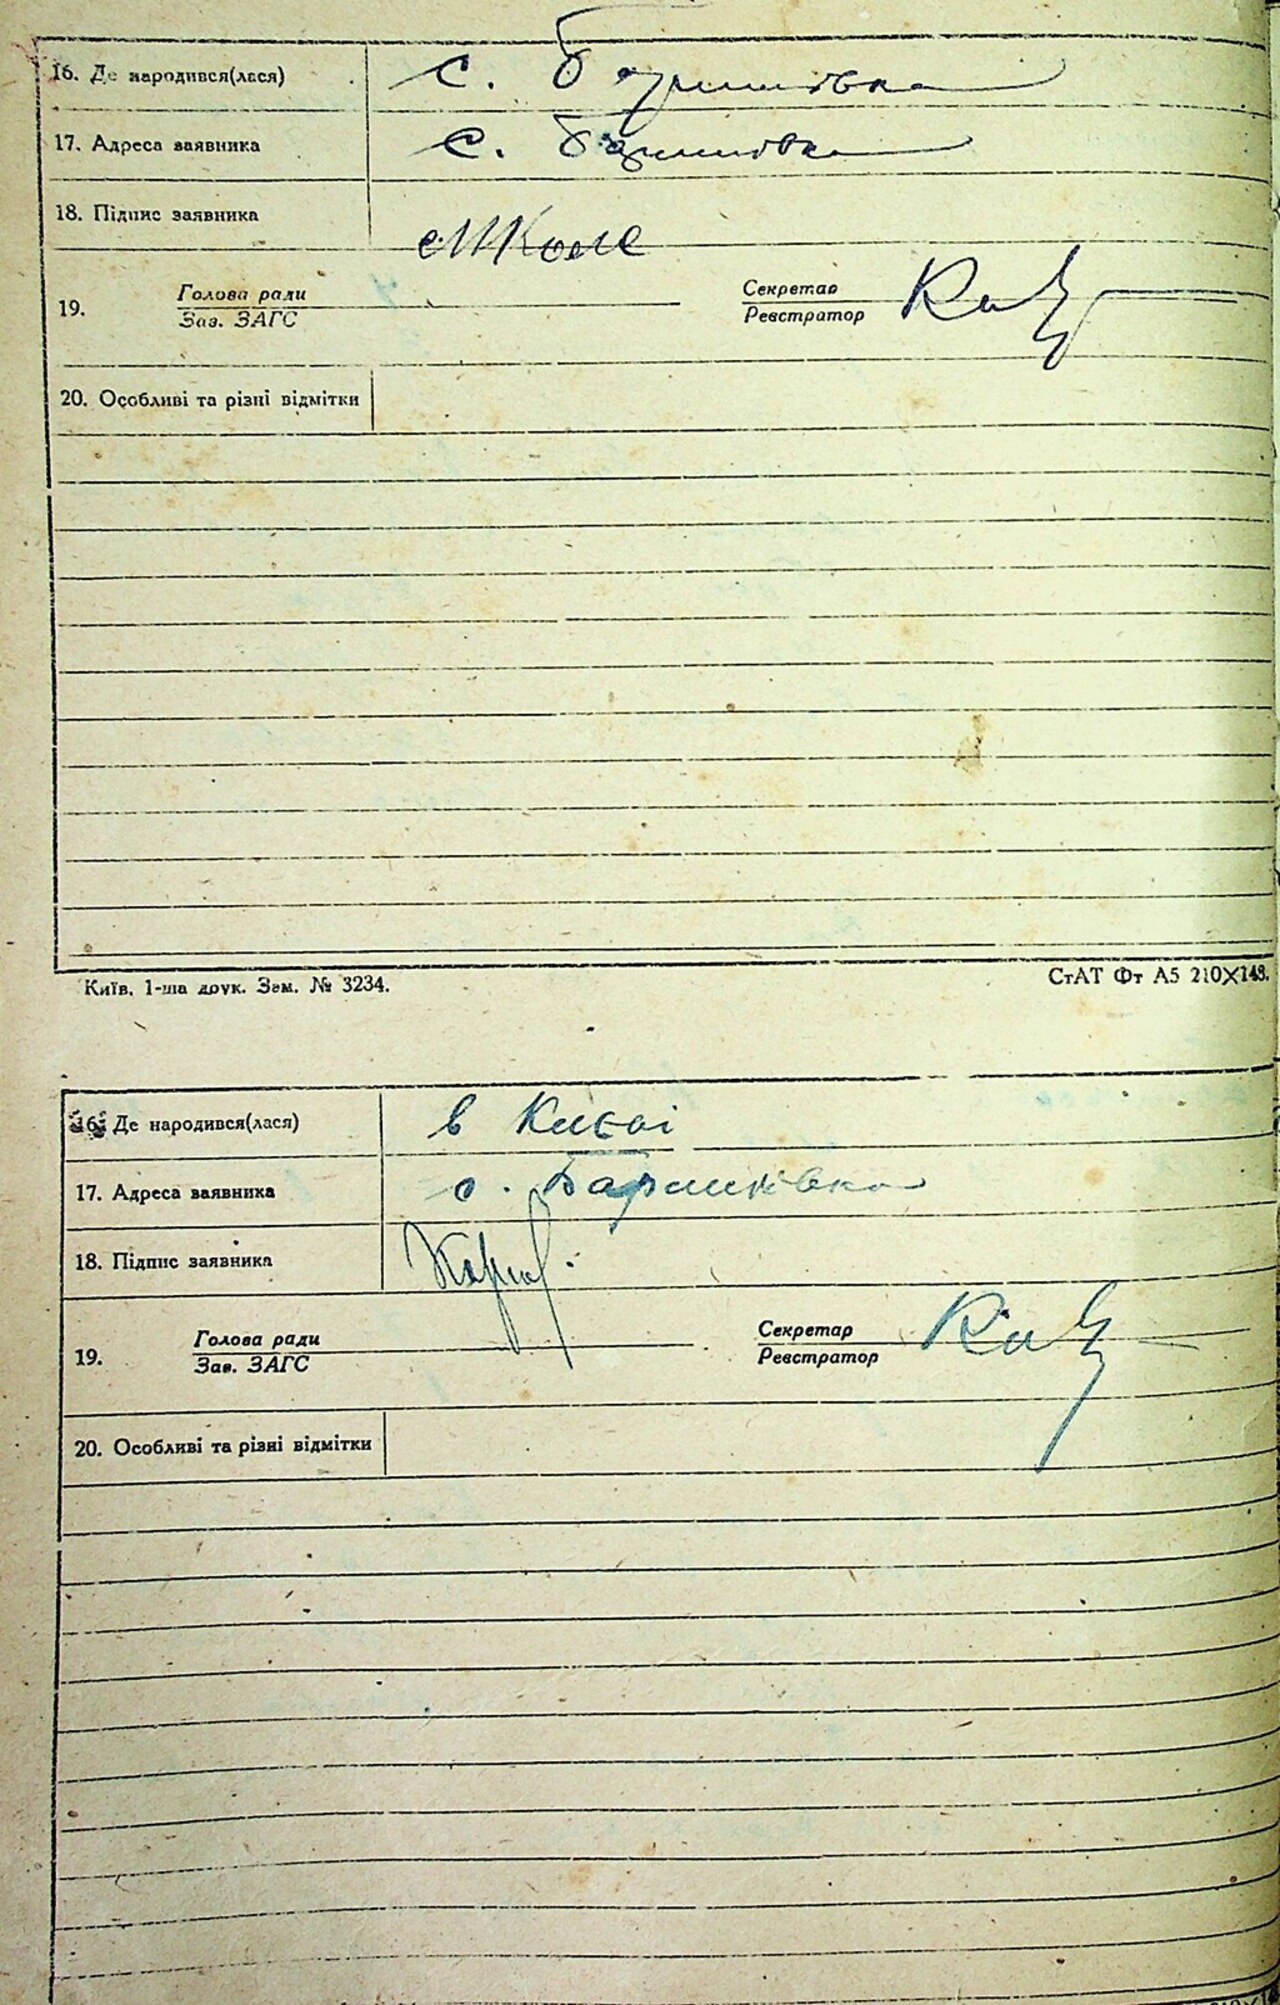 16. Де народився(лася) с. Баришівка
17. Адреса заявника с. Баришівка
18. Підпис заявника
19. Голова ради Секретар
Зав. ЗАГС Реєстратор
20. Особливі та різні відмітки
Київ, 1-ша друк. Зам. № 3234. СтАТ Фт А5 210X148.
16. Де народився(лася) в Києві
17. Адреса заявника с. Баришівка
18. Підпис заявника
19. Голова ради Секретар
Зав. ЗАГС Реєстратор
20. Особливі та різні відмітки